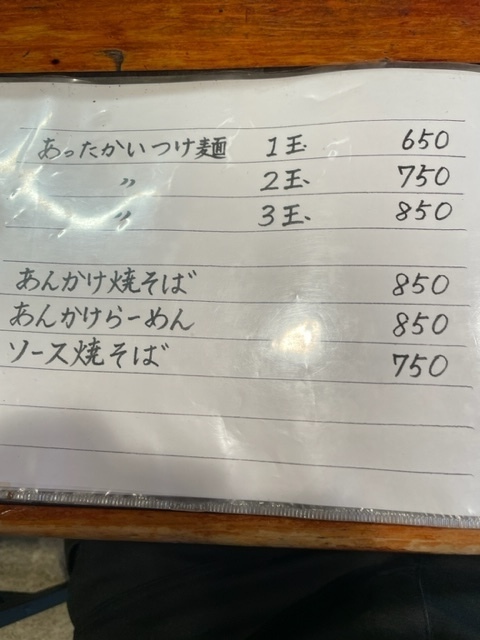 あったかいつけ麺 1玉 650
〃 2玉 750
〃 3玉 850
あんかけ焼そば 850
あんかけらーめん 850
ソース焼そば 750